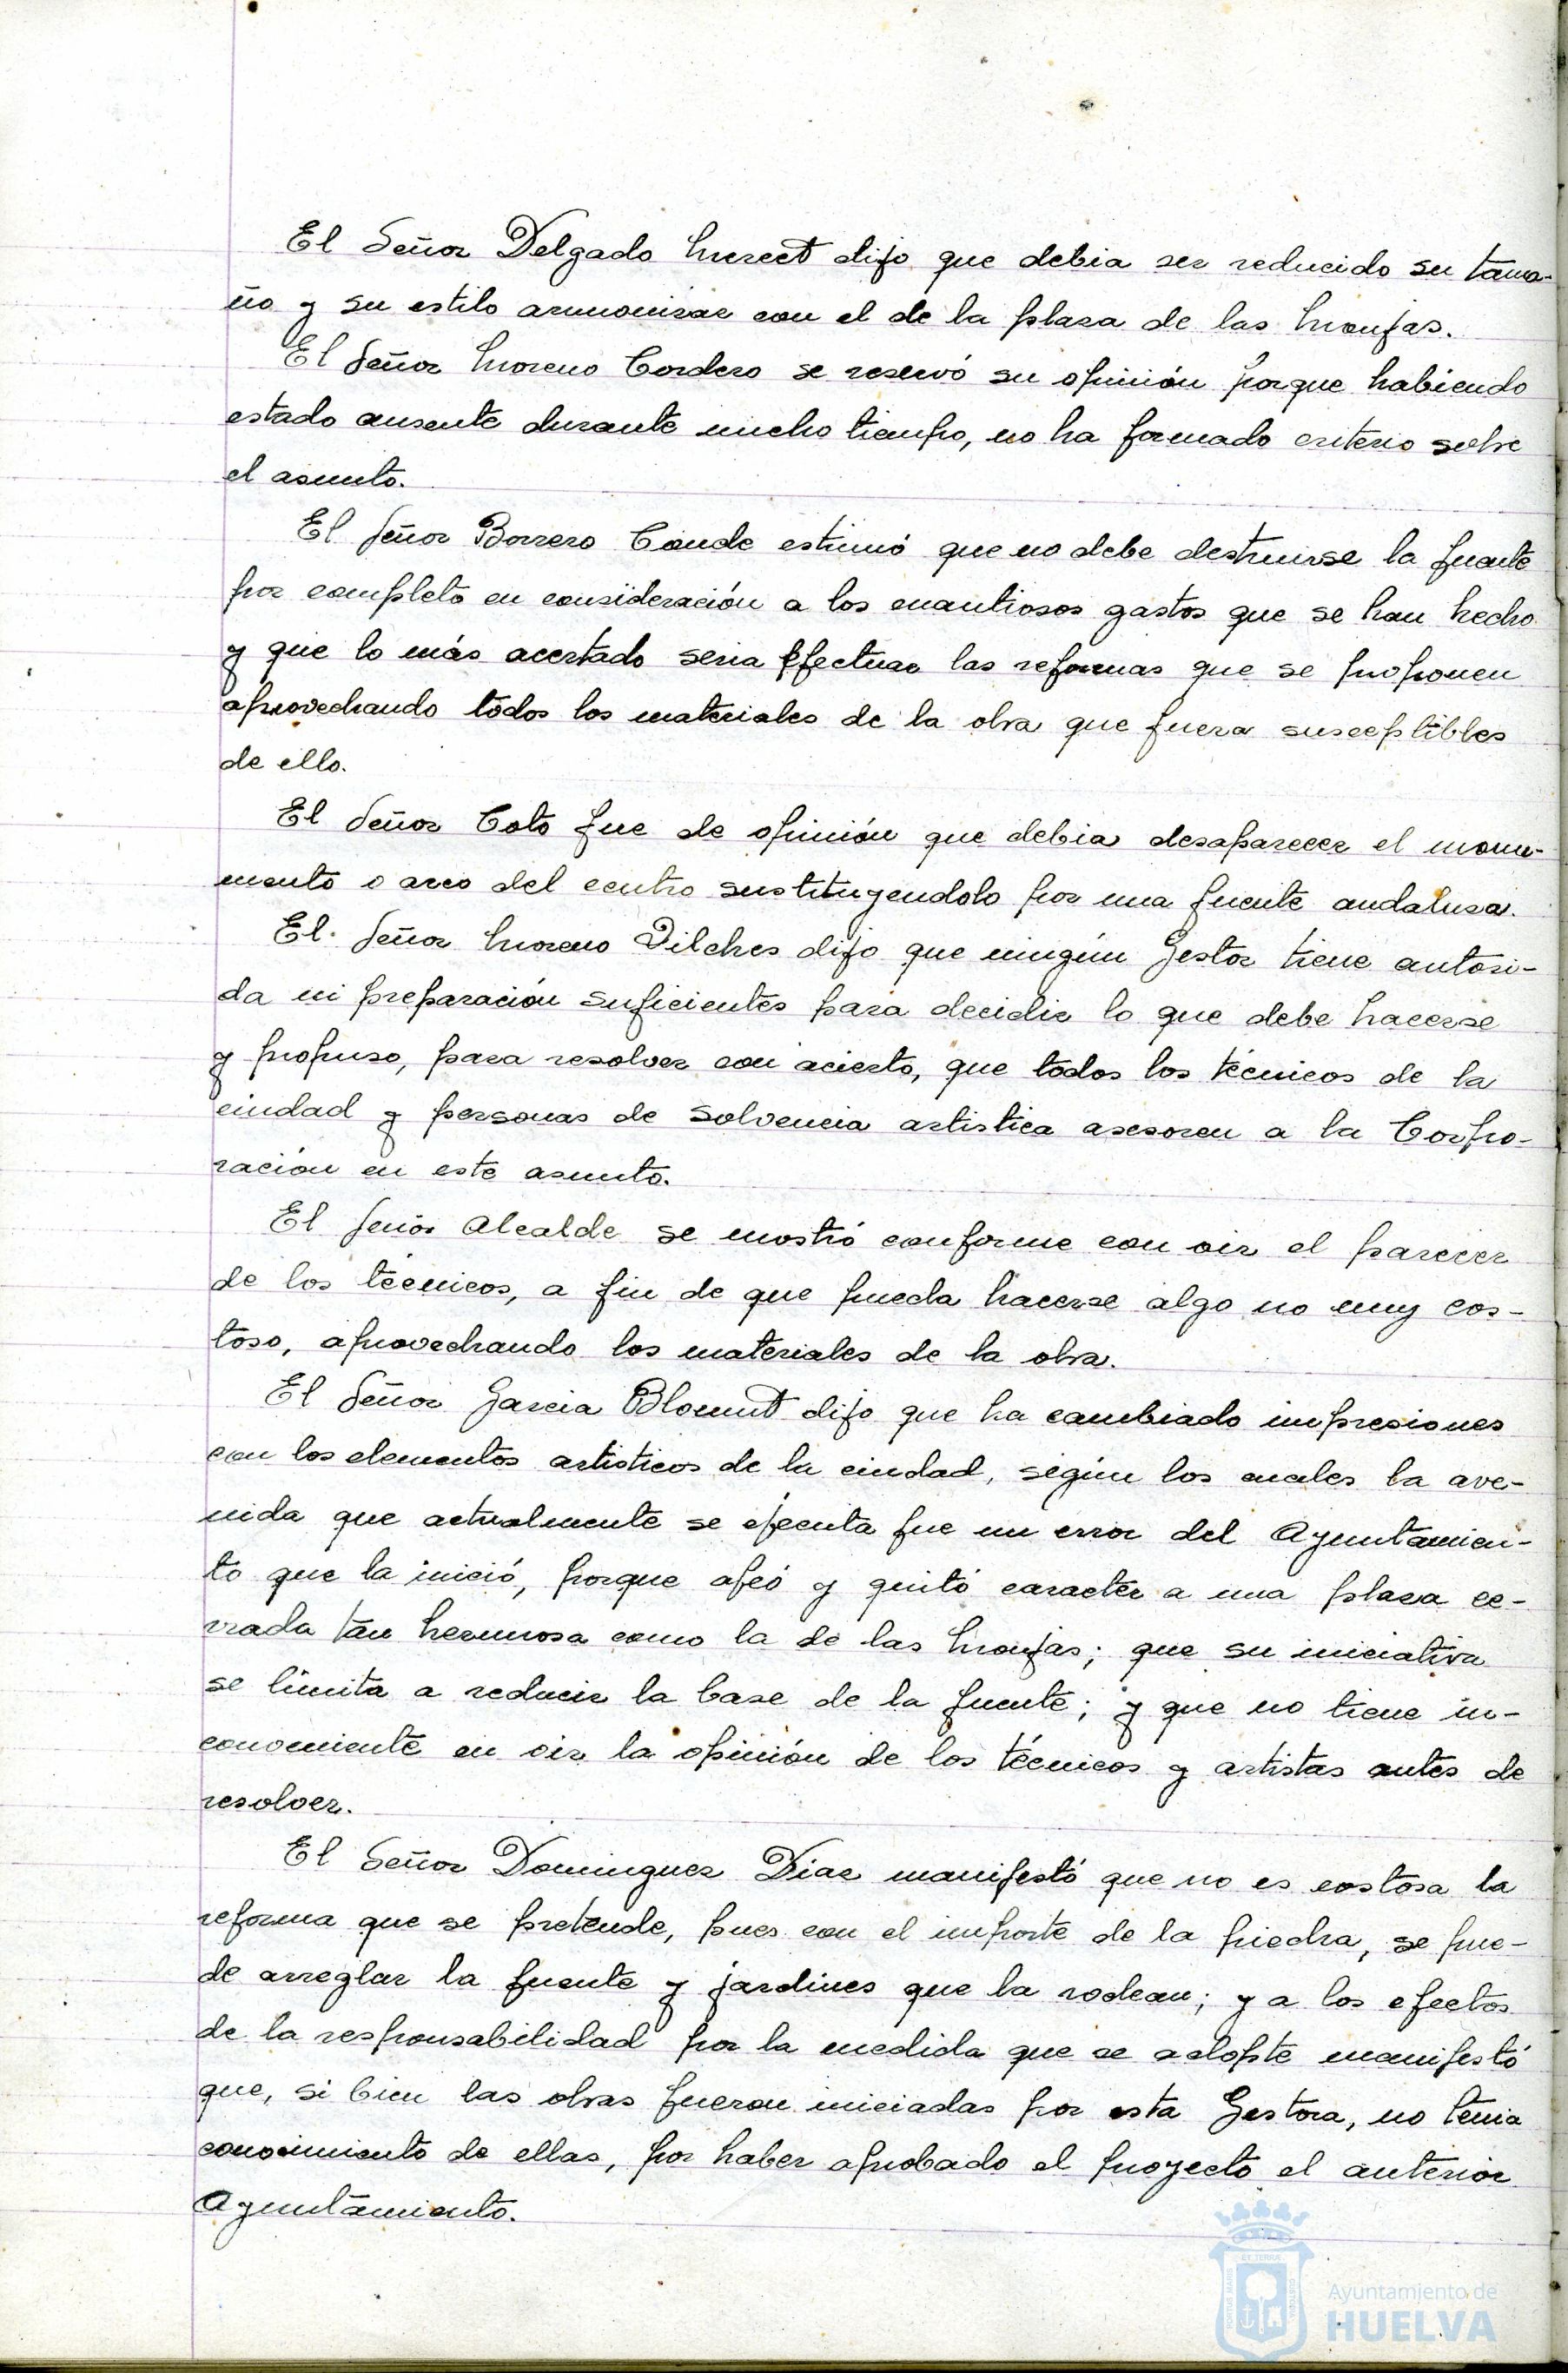 El Señor Delgado Merect dijo que debia ser reducido su tama-
ño y su estilo armonizar con el de la plaza de las Monjas.
El Señor Moreno Cordero se reservó su opinión porque habiendo
estado ausente durante mucho tiempo, no ha formado criterio sobre
el asunto.
El Señor Borrero Conde estimó que no debe destruirse la fuente
por completo en consideración a los cuantiosos gastos que se han hecho
y que lo más acertado seria efectuar las reformas que se proponen
aprovechando todos los materiales de la obra que fuera susceptibles
de ello.
El Señor Coto fue de opinión que debia desaparecer el monu-
mento o arco del centro sustituyendolo por una fuente andaluza.
El Señor Moreno Vilches dijo que ningún Gestor tiene autori-
da ni preparación suficientes para decidir lo que debe hacerse
y propuso, para resolver con acierto, que todos los técnicos de la
ciudad y personas de solvencia artistica asesoren a la Corpo-
ración en este asunto.
El Señor Alcalde se mostró conforme con oir el parecer
de los técnicos, a fin de que pueda hacerse algo no muy cos-
toso, aprovechando los materiales de la obra.
El Señor Garcia Blomut dijo que ha cambiado impresiones
con los elementos artisticos de la ciudad, según los cuales la ave-
nida que actualmente se ejecuta fue un error del Ayuntamien-
to que la inició, porque afeó y quitó caracter a una plaza ce-
rrada tan hermosa como la de las Monjas; que su iniciativa
se limita a reducir la base de la fuente; y que no tiene in-
conveniente en oir la opinión de los técnicos y artistas antes de
resolver.
El Señor Dominguez Diaz manifestó que no es costosa la
reforma que se pretende, pues con el importe de la piedra, se pue-
de arreglar la fuente y jardines que la rodean; y a los efectos
de la responsabilidad por la medida que se adopte manifestó
que, si bien las obras fueron iniciadas por esta Gestora, no tenia
conocimiento de ellas, por haber aprobado el proyecto el anterior
Ayuntamiento.
Ayuntamiento de
HUELVA